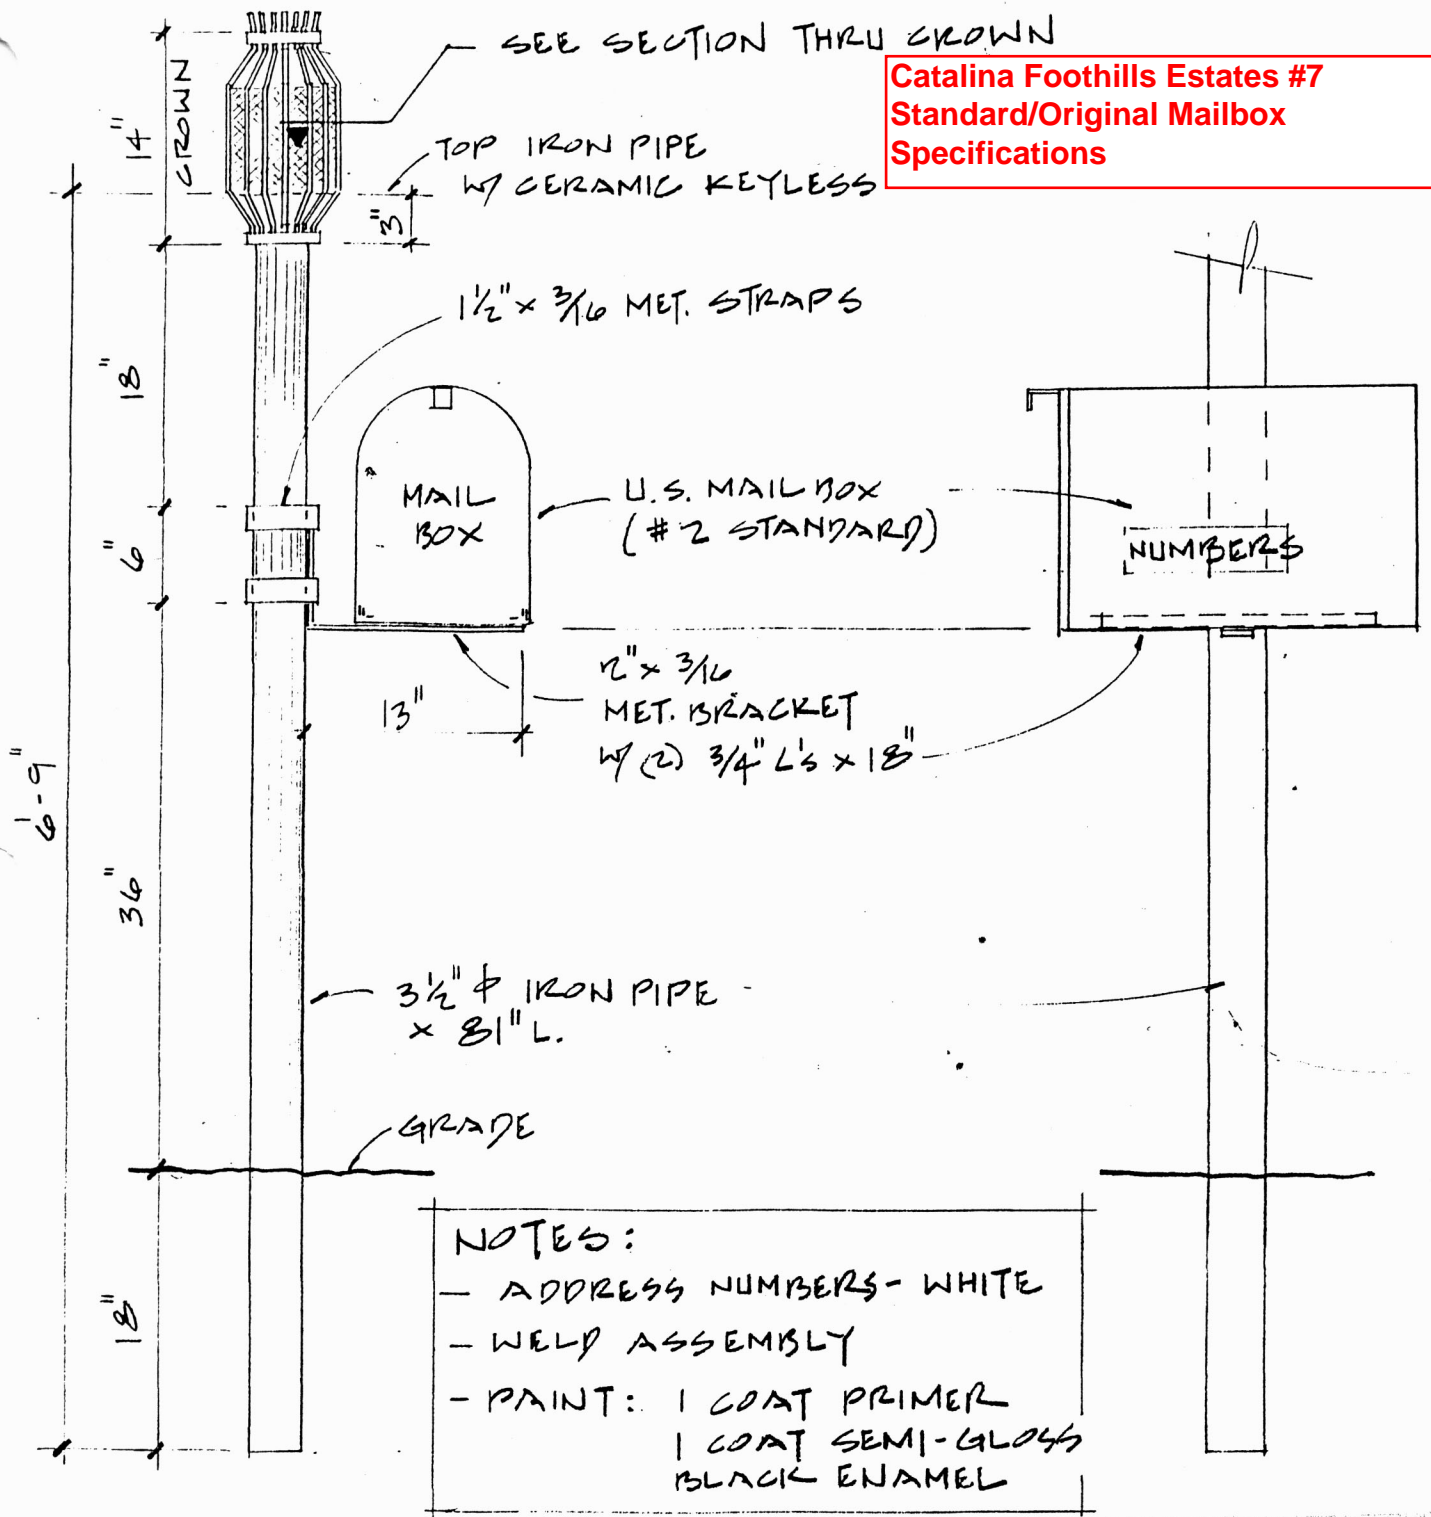 SEE SECTION THRU CROWN
Catalina Foothills Estates #7
Standard/Original Mailbox
Specifications
14"
CROWN
TOP IRON PIPE
W/ CERAMIC KEYLESS
3"
1½" x 3/16 MET. STRAPS
18"
MAIL
BOX
U.S. MAIL BOX
(#2 STANDARD)
NUMBERS
6"
2" x 3/16
MET. BRACKET
W/ (2) 3/4" L's x 18"
13"
6'-9"
36"
3½" φ IRON PIPE
x 81" L.
GRADE
18"
NOTES:
- ADDRESS NUMBERS - WHITE
- WELD ASSEMBLY
- PAINT: 1 COAT PRIMER
1 COAT SEMI-GLOSS
BLACK ENAMEL